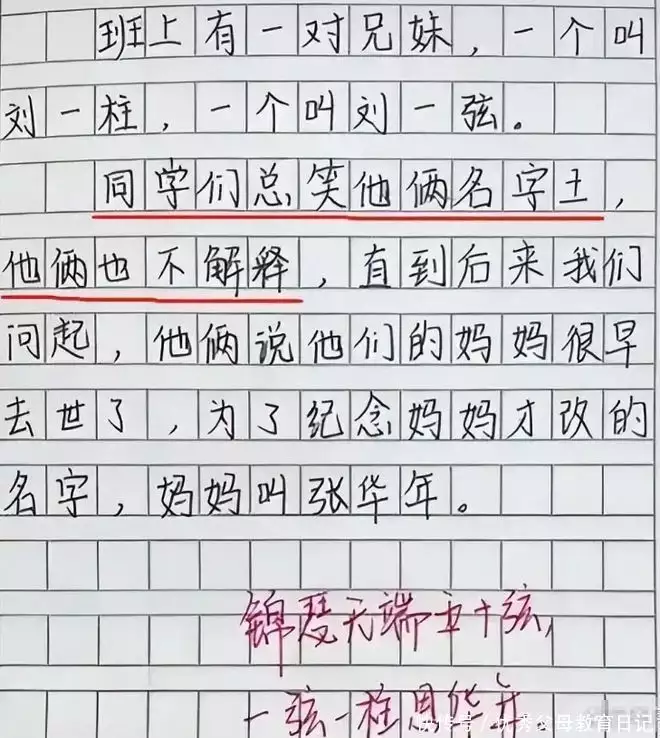 班上有一对兄妹，一个叫
刘一柱，一个叫刘一弦。
同学们总笑他俩名字土，
他俩也不解释，直到后来我们
问起，他俩说他们的妈妈很早
去世了，为了纪念妈妈才改的
名字，妈妈叫张华年。
锦瑟无端五十弦，
一弦一柱思华年
快传号／优秀父母教育日记